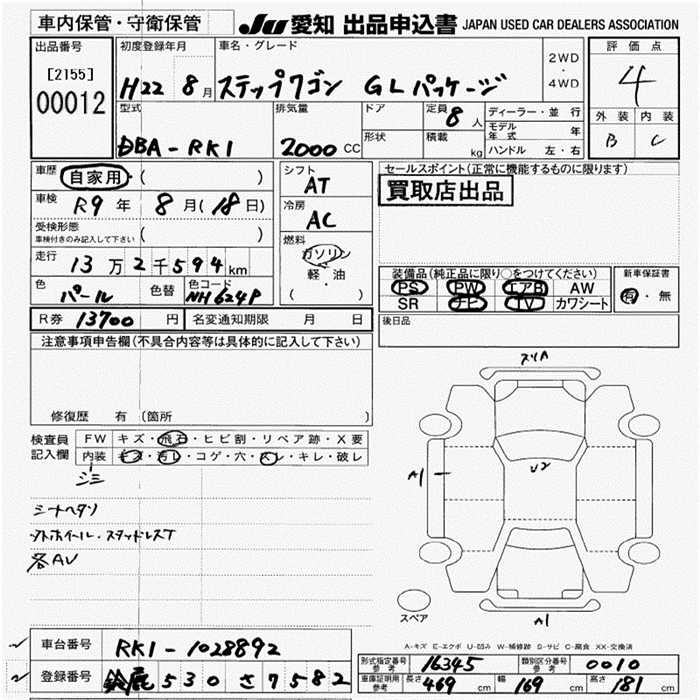 車内保管・守衛保管 JU 愛知 出品申込書 JAPAN USED CAR DEALERS ASSOCIATION
出品番号 初度登録年月 車名・グレード 2WD・4WD 評価点
[2155] 00012 H22 8月 ステップワゴン GLパッケージ 4
型式 排気量 ドア 定員 8人 ディーラー・並行 外装 内装
DBA-RK1 2000CC 形状 積載 kg モデル年式 年 B C
ハンドル 左・右
車歴 自家用 ( ) シフト AT セールスポイント(正常に機能するものに限ります)
車検 R9年 8月(18日) 冷房 AC 買取店出品
受検形態 車検付きのみ記入して下さい ( ) 燃料 ガソリン
走行 13万2千594km 軽・油 ( )
装備品(純正品に限り○をつけてください) 新車保証書
PS PW エアB AW 有・無
色 パール 色替 色コード NH624P
SR ナビ TV カワシート
R券 13700円 名変通知期限 月 日 後日品
注意事項申告欄(不具合内容等は具体的に記入して下さい)
修復歴 有 (箇所 )
検査員記入欄 FW キズ・飛石・ヒビ割・リペア跡・X要
内装 キズ・汚レ・コゲ・穴・スレ・キレ・破レ
シミ
シートヘタリ
外ホイール・スタッドレスT
各AU
スリA
A1
U2
A1
スペア
A-キズ E-エクボ U-凹み W-補修跡 S-サビ C-腐食 XX-交換済
車台番号 RK1-1028892
型式指定番号 参考 16345 類別区分番号 参考 0010
登録番号 鈴鹿 530 さ 7582
車庫証明用 参考 長さ 469cm 幅 169cm 高さ 181cm